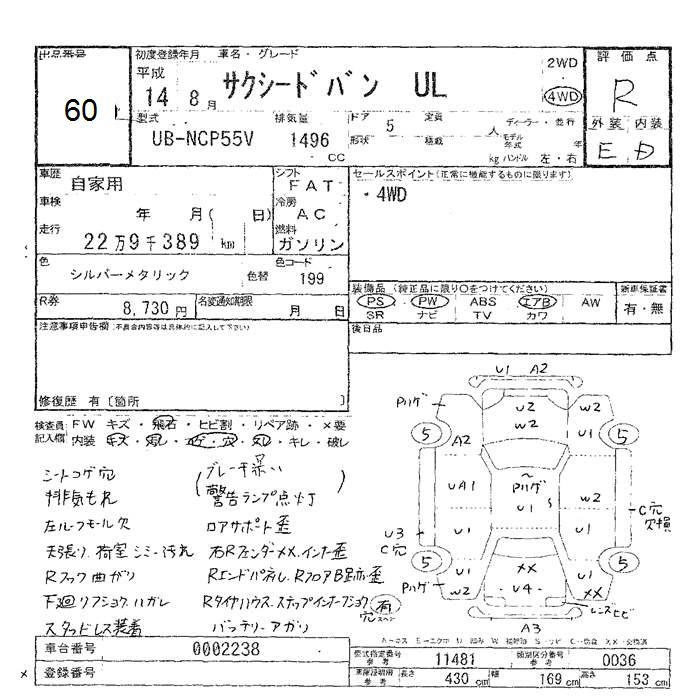 出品番号
60
初度登録年月
車名・グレード
平成
14 8月
サクシードバン UL
2WD
4WD
評価点
R
型式
UB-NCP55V
排気量
1496
cc
ドア
5
定員
人
ディーラー・並行
形状
積載
kg
モデル年式
年
ハンドル 左・右
外装 内装
E D
車歴
自家用
シフト
FAT
車検
年 月( 日)
冷房
AC
走行
22万9千389 km
燃料
ガソリン
セールスポイント(正常に機能するものに限ります)
・4WD
色
シルバーメタリック
色替
色コード
199
R券
8,730円
名変通知期限
月 日
装備品 (純正品に限り○をつけてください)
PS PW ABS エアB AW
SR ナビ TV カワ
新車保証書
有・無
後日品
注意事項申告欄(不具合内容等は具体的に記入して下さい)
修復歴 有〔箇所 〕
検査員記入欄
FW キズ・飛石・ヒビ割・リペア跡・×要
内装 キズ・汚レ・コゲ・穴・スレ・キレ・破レ
シートコゲ穴
排気もれ
左ルーフモール欠
天張り、荷室シミー汚れ
Rフック曲ガリ
下廻リフショク、ハガレ
スタッドレス装着
ブレーキ警告ランプ点灯
ロアサポート歪
右Rフェンダーメメ、インナー歪
Rエンドパネル、RフロアB見跡・歪
Rタイヤハウス、ステップインナーフショク 有
穴
バッテリーアガリ
U1 A2
Pハゲ
U2
W2
W2
5
5
A2
U1
UA1
Pハゲ
U1
W2
C穴
欠損
U1
U1
U3
C穴
5
5
U1
XX
U1
Pハゲ
W2
U4
XX
レンズヒビ
A3
車台番号
0002238
登録番号
型式指定番号
参考
11481
類別区分番号
参考
0036
車庫証明用
参考
長さ
430 cm
幅
169 cm
高さ
153 cm